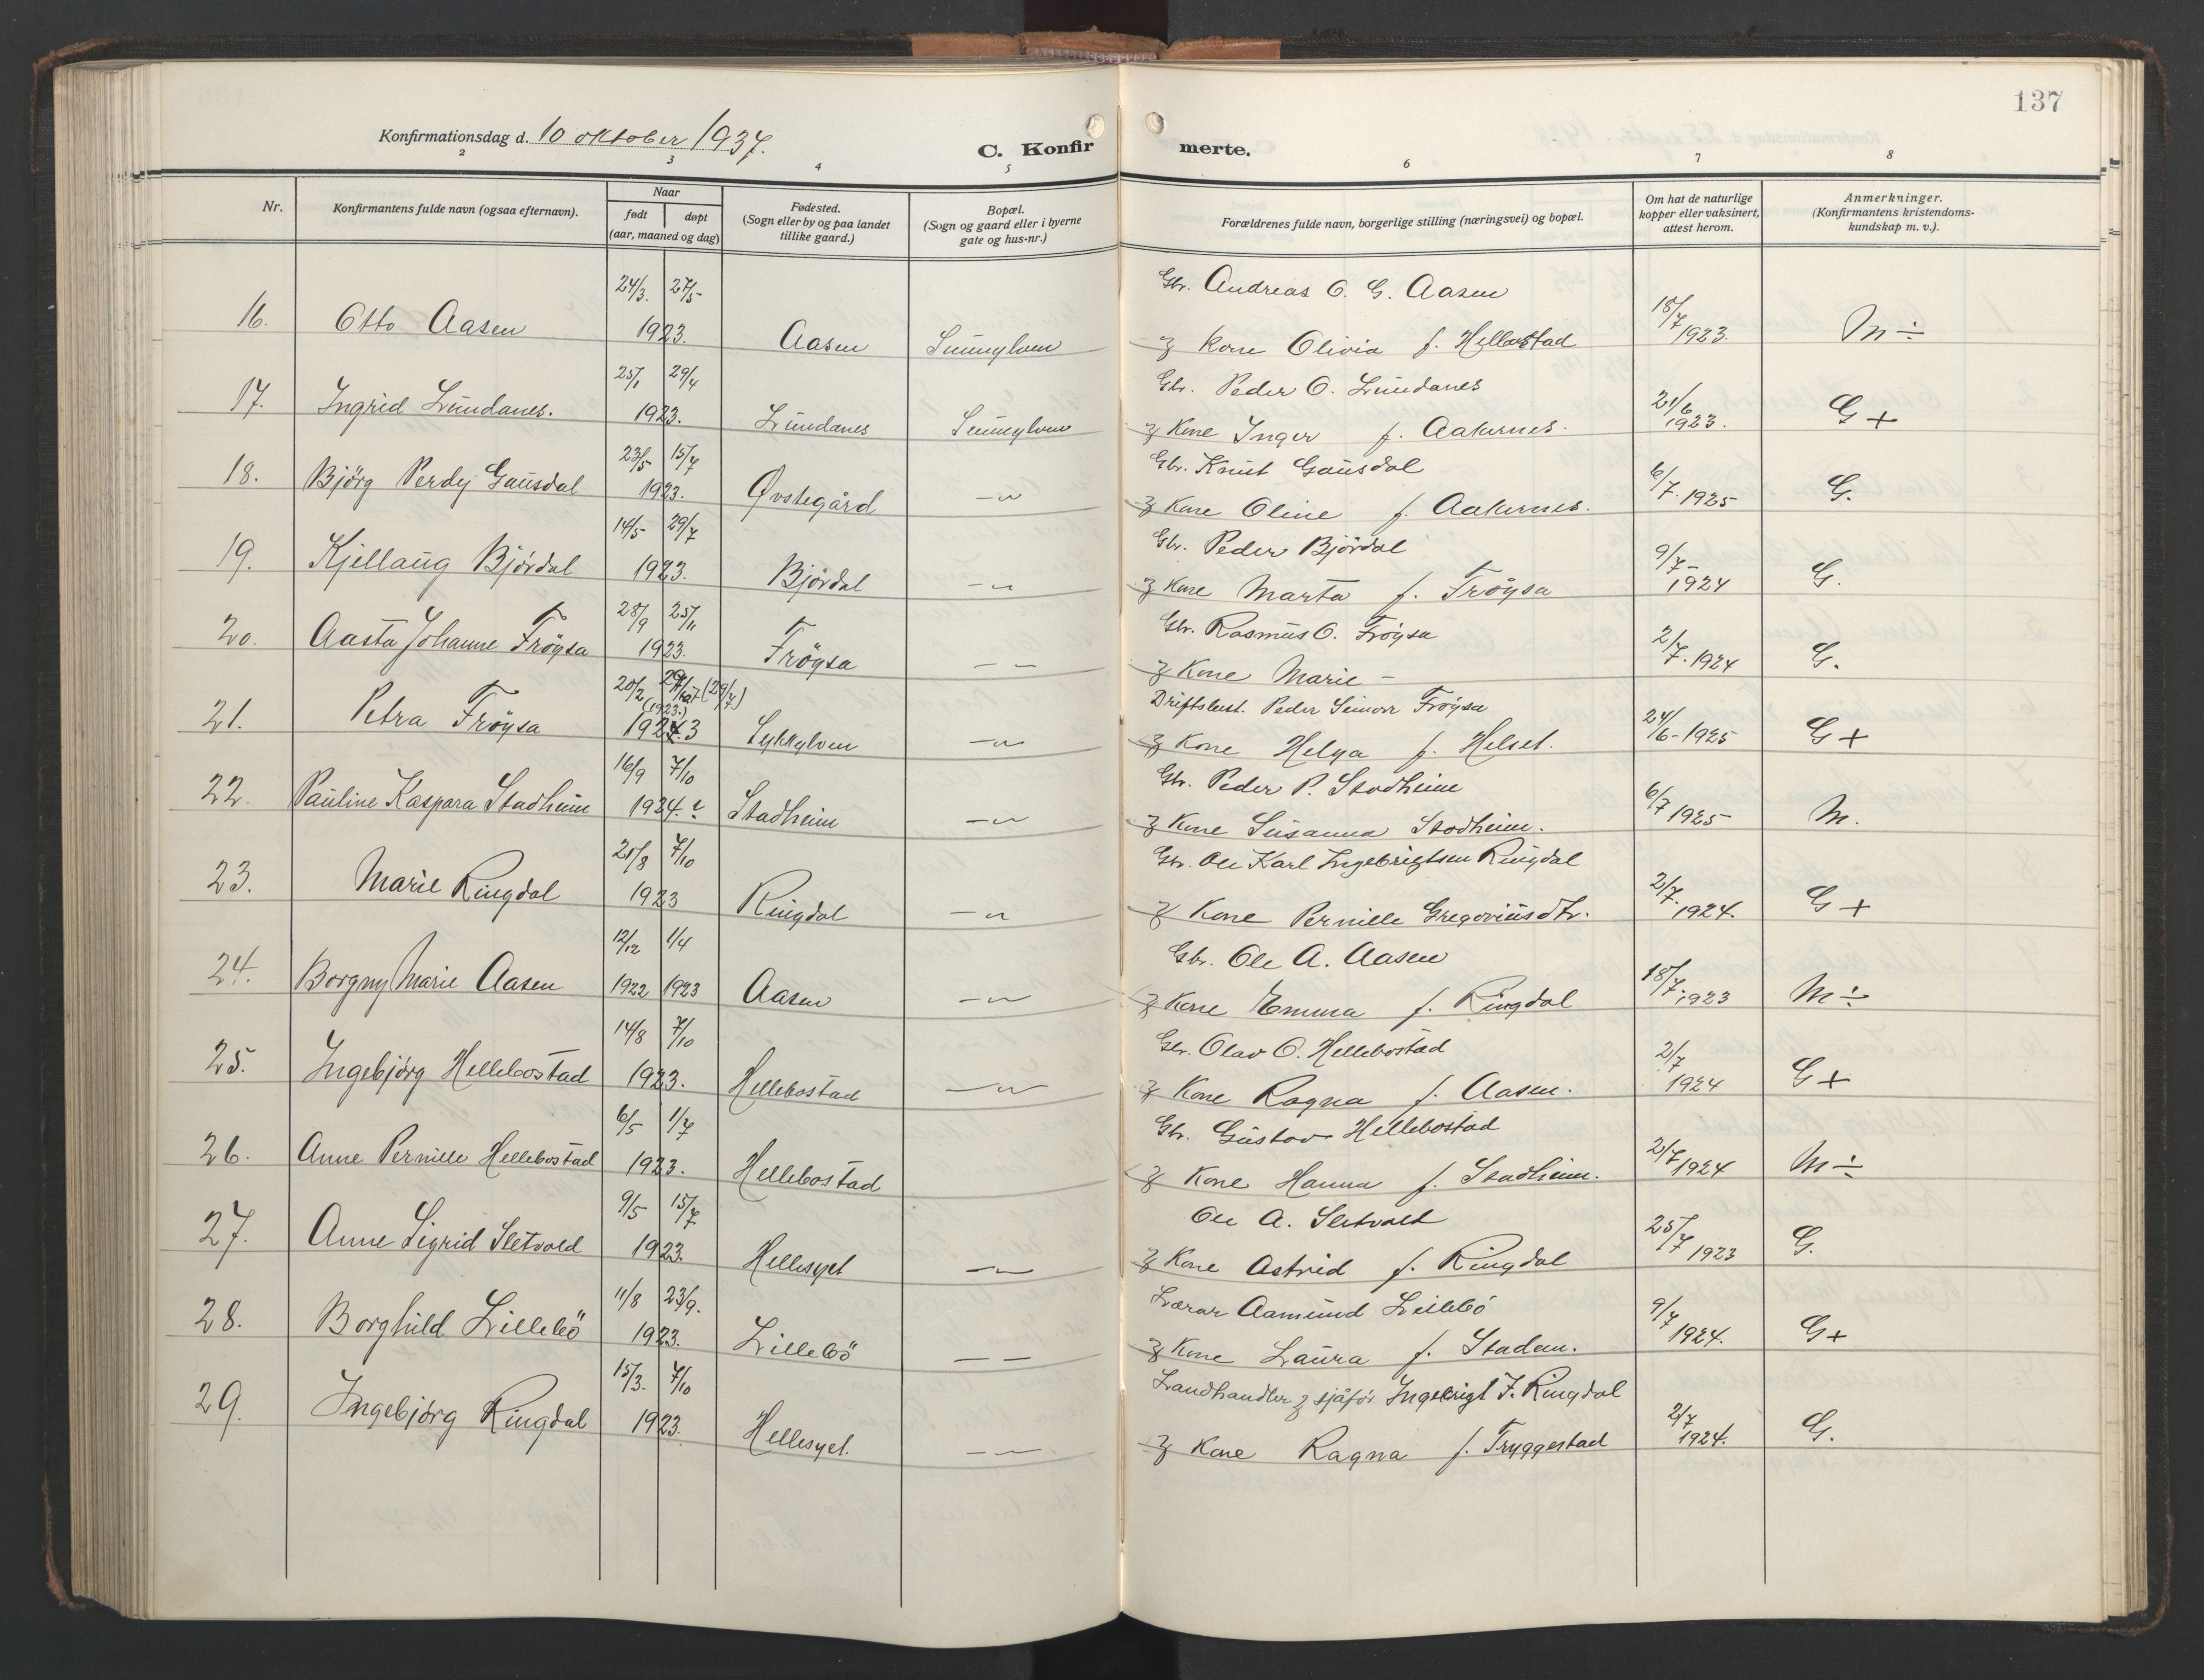 137
Konfirmationsdag d. 10 oktober 1937.
C. Konfirmerte.
2 3 4 5 6 7 8
Nr.
Konfirmantens fulde navn (ogsaa efternavn).
Naar
født døpt
(aar, maaned og dag)
Fødested.
(Sogn eller by og paa landet
tillike gaard.)
Bopæl.
(Sogn og gaard eller i byerne
gate og hus-nr.)
Forældrenes fulde navn, borgerlige stilling (næringsvei) og bopæl.
Om hat de naturlige
kopper eller vaksinert,
attest herom.
Anmerkninger.
(Konfirmantens kristendoms-
kundskap m. v.).
24/3. 27/5 Gbr. Andreas O. G. Aasen
16. Otto Aasen 1923. Aasen Sunnylven & Kone Olivia f. Hellebostad 18/7 1923. M ÷
25/1 29/4 Gbr. Peder O. Lundanes
17. Ingrid Lundanes. 1923. Lundanes Sunnylven & Kone Inger f. Aakernes. 21/6 1923. G +
23/5 15/7 Gbr. Knut Gausdal
18. Bjørg Perdy Gausdal 1923. Øvstegård —"— & Kone Oline f. Aakernes. 6/7. 1925 G.
14/5 29/7 Gbr. Peder Bjørdal
19. Kjellaug Bjørdal 1923. Bjørdal —"— & Kone Marta f. Frøysa 9/7- 1924 G.
28/9 25/11 Gbr. Rasmus O. Frøysa
20. Aasta Johanne Frøysa 1923. Frøysa — — & Kone Marie - 2/7. 1924 G.
20/2 (29/7) (1923.) Driftsbest. Peder Seinorr Frøysa
21. Petra Frøysa 1923 Sykkylven —"— & Kone Helga f. Helset. 24/6-1925 G +
16/9 7/10 Gbr. Peder P. Stadheim
22. Pauline Kaspara Stadheim 1924. Stadheim —"— & Kone Susanna Stadheim. 6/7 1925 M.
25/8 7/10 Gbr. Ole Karl Ingebrigtsen Ringdal
23. Marie Ringdal 1923 Ringdal —"— & Kone Pernille Gregoriusdtr. 2/7. 1924. G +
12/12 1/4 Gbr. Ole A. Aasen
24. Borgny Marie Aasen 1922 1923 Aasen —"— & Kone Emma f. Ringdal 18/7. 1923 M ÷
14/8 7/10 Gbr. Olav O. Hellebostad
25. Ingebjørg Hellebostad 1923. Hellebostad —"— & Kone Ragna f. Aasen. 2/7 1924 G +
6/5 1/7 Gbr. Gustav Hellebostad
26. Anne Pernille Hellebostad 1923. Hellebostad & Kone Hanna f. Stadheim. 2/7 1924 M ÷
9/5 15/7 Ole A. Sletvold
27. Anne Sigrid Sletvold 1923. Hellesylt —"— & Kone Astrid f. Ringdal 25/7 1923 G.
11/8 23/9. Lærar Aamund Lillebö
28. Borghild Lillebö 1923. Lillebö — — & Kone Laura f. Stadem. 9/7 1924. G +
15/3. 7/10 Landhandler & sjåfør Ingebrigt J. Ringdal
29. Ingebjørg Ringdal 1923. Hellesylt. —"— & Kone Ragna f. Tryggestad 2/7 1924. G.